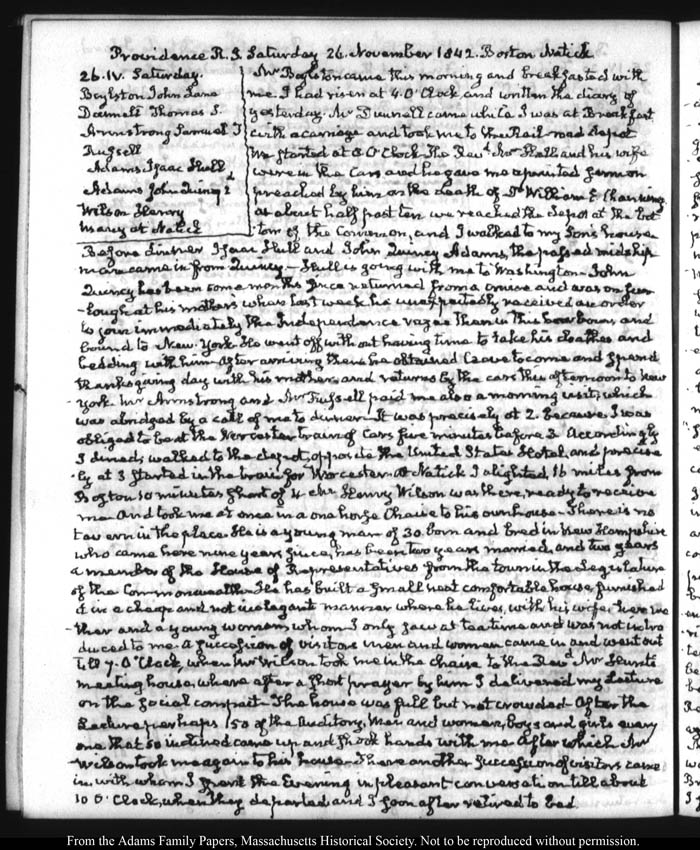 Providence R.I. Saturday 26. November 1842. Boston Natick
26. IV. Saturday.
Boylston John Lane
Dunnell Thomas L.
Armstrong Samuel T
Russell
Adams Isaac Hull
Adams John Quincy 2d
Wilson Henry
Marcy at Natick
Mr Boylston came this morning and breakfasted with
me. I had risen at 4. O'Clock and written the diary of
yesterday. Mr Dunnell came while I was at Breakfast
with a carriage and took me to the Rail-road depot
We started at 8 O'Clock. The Revd. Mr Hall and his wife
were in the Cars and he gave me a printed Sermon
preached by him on the death of Dr William E. Channing
at about half past ten we reached the depot at the bot-
-tom of the Common, and I walked to my Son's house
Before dinner Isaac Hull and John Quincy Adams, the passed midship-
man came in from Quincy — Hull is going with me to Washington — John
Quincy has been some months since returned from a cruise and was on fur-
-lough at his mother's when last week he unexpectedly received an order
to join immediately the Independence razee then in this harbour, and
bound to New-York. He went off without having time to take his cloathes and
bedding with him. After arriving there he obtained leave to come and spend
thanksgiving day with his mother, and returns by the cars this afternoon to New
-York. Mr Armstrong and Mr Russell paid me also a morning visit, which
was abridged by a call of me to dinner. It was precisely at 2. because I was
obliged to be at the Worcester train of Cars five minutes before 3. Accordingly
I dined, walked to the depot, opposite the United States Hotel, and precise-
-ly at 3 started in the train for Worcester. At Natick I alighted, 16 miles from
Boston 10 minutes short of 4. Mr Henry Wilson was there, ready to receive
me and took me at once in a one horse Chaise to his own house. There is no
tavern in the place. He is a young man of 30. born and bred in New Hampshire
who came here nine years since, has been two years married, and two years
a member of the House of Representatives from the town in the Legislature
of the Commonwealth. He has built a small neat comfortable house, furnished
it in a cheap and not inelegant manner where he lives, with his wife, her mo-
-ther and a young woman whom I only saw at tea time and was not intro
duced to me. A succession of visitors men and women came in and went out
till 7. O'Clock, when Mr Wilson took me in the chaise to the Revd. Mr Hunt's
meeting house, where after a short prayer by him I delivered my Lecture
on the Social compact. The house was full but not crowded. After the
Lecture perhaps 150 of the auditory, Men and women, boys and girls every
one that so inclined came up and shook hands with me. After which Mr
Wilson took me again to his house. There another succession of visitors came
in, with whom I spent the Evening in pleasant conversation till about
10 O'Clock, when they departed and I soon after retired to bed.
From the Adams Family Papers, Massachusetts Historical Society. Not to be reproduced without permission.